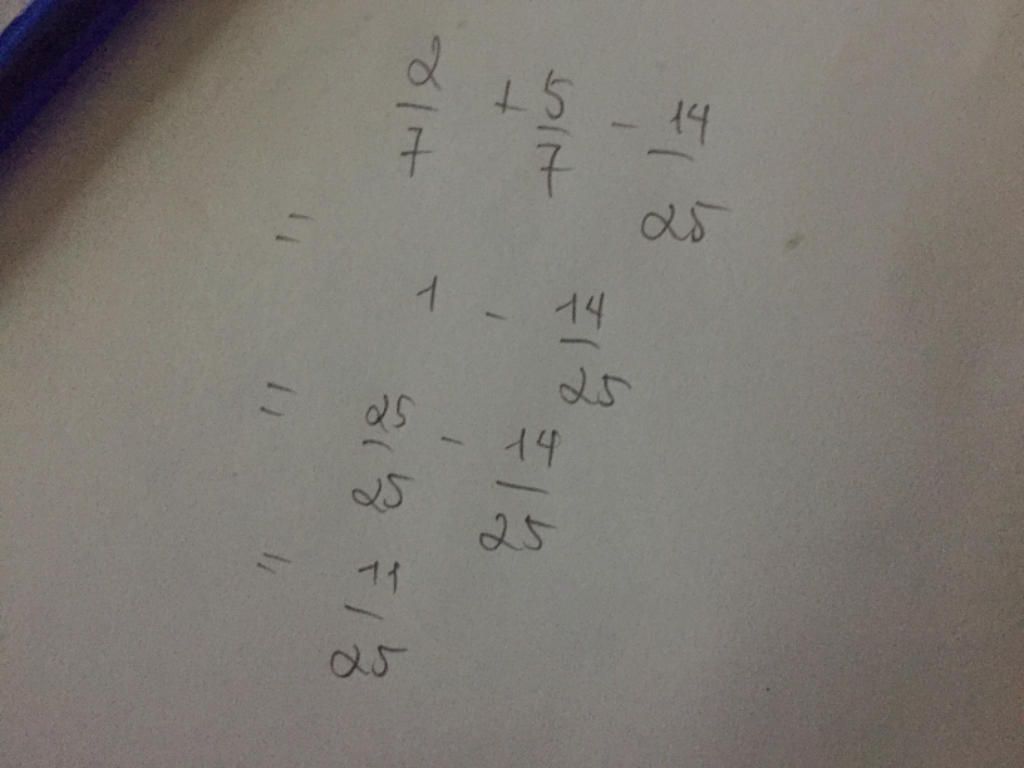 2/7 + 5/7 - 14/25
= 1 - 14/25
= 25/25 - 14/25
= 11/25